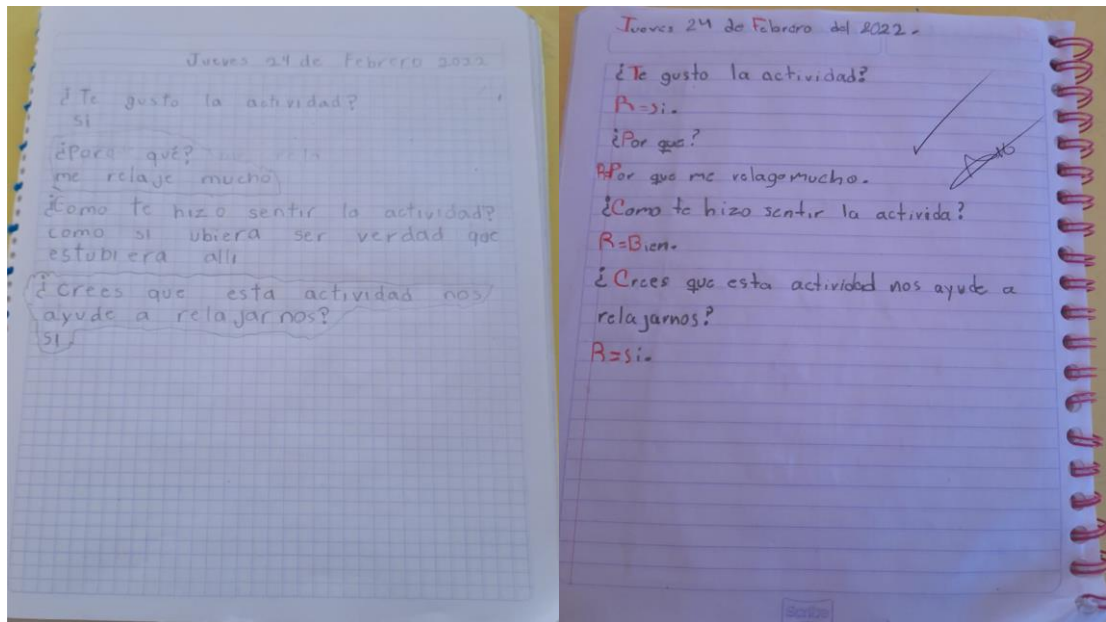 Jueves 24 de Febrero 2022
¿Te gusto la actividad?
si
¿Para qué?
me relaje mucho
¿Como te hizo sentir la actividad?
como si ubiera ser verdad que
estubiera alli
¿crees que esta actividad nos
ayude a relajarnos?
si
Jueves 24 de Febrero del 2022.
¿Te gusto la actividad?
R=si.
¿Por que?
R=Por que me relagomucho.
¿Como te hizo sentir la activida?
R=Bien.
¿Crees que esta actividad nos ayude a
relajarnos?
R=si.
Scribe